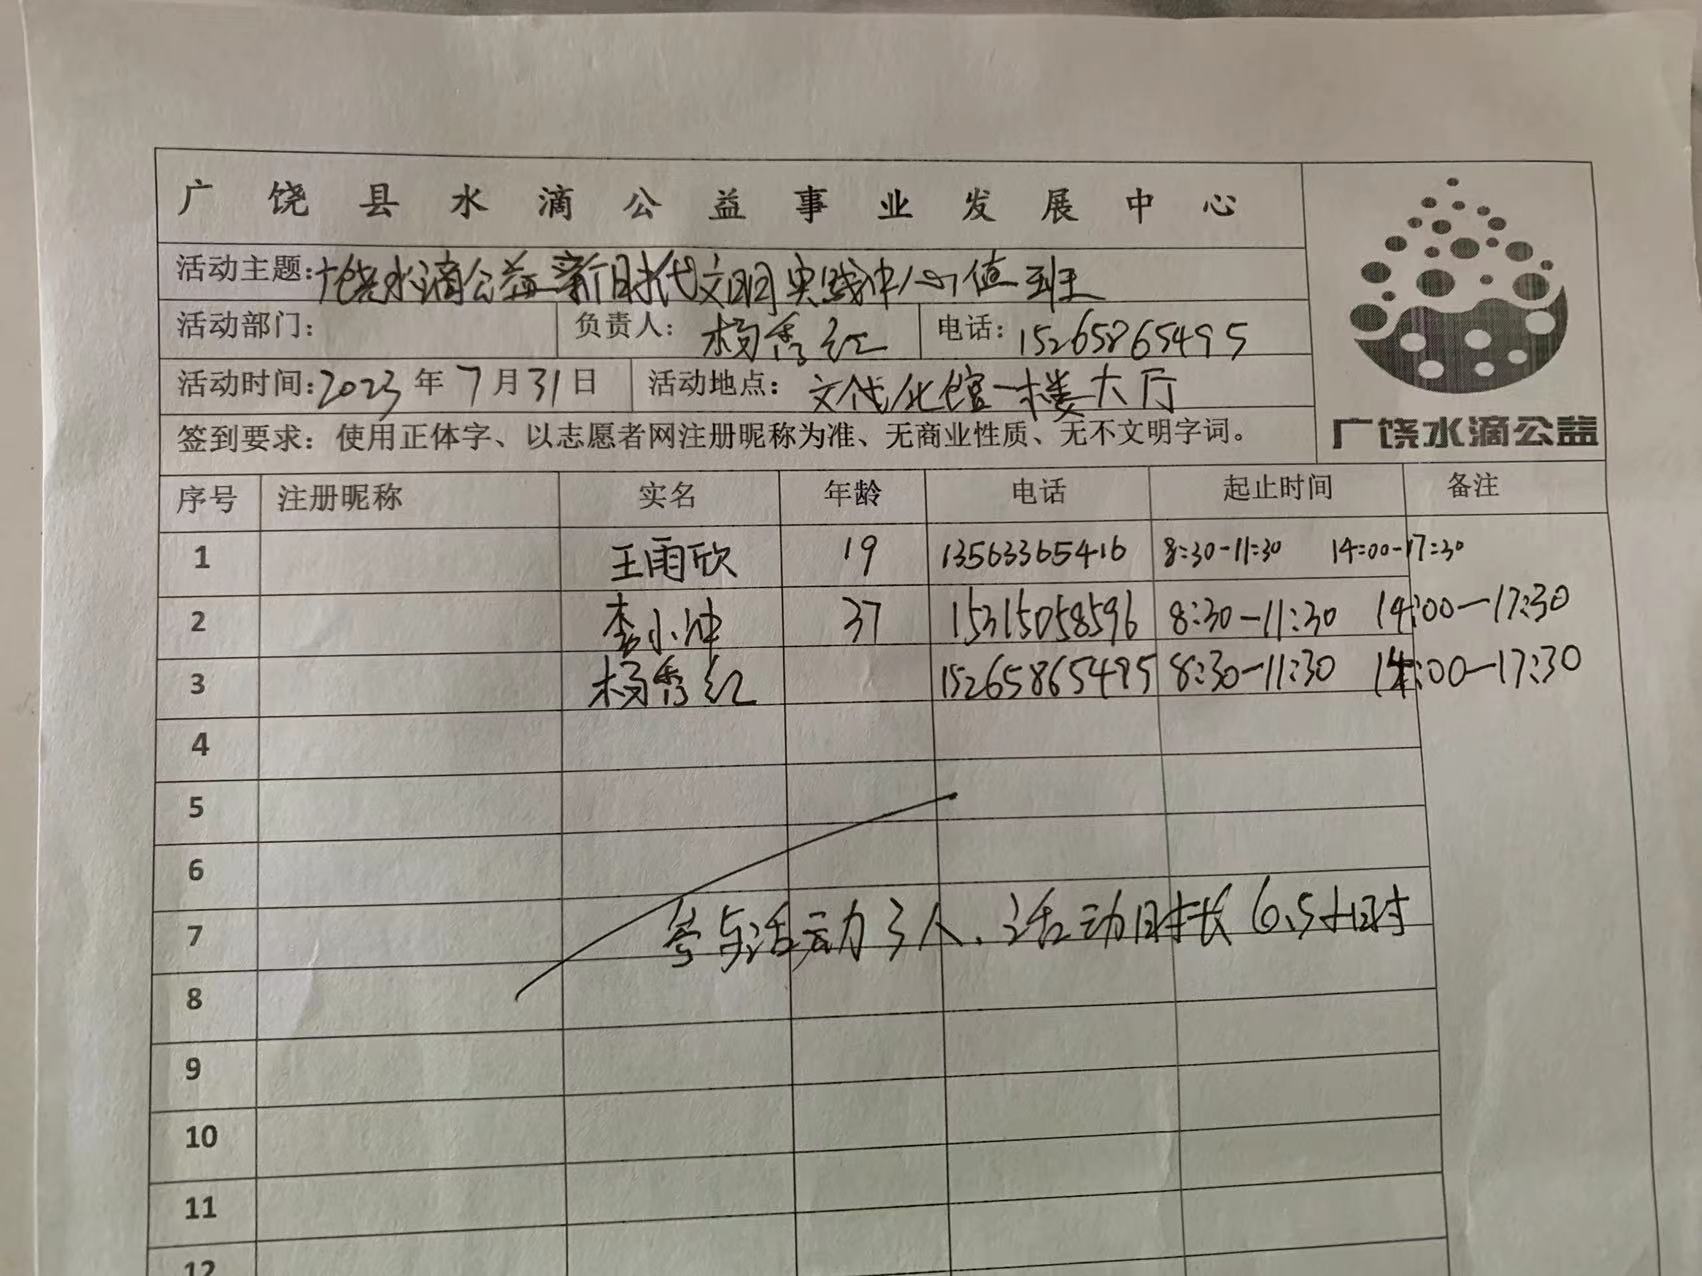 广饶县水滴公益事业发展中心
活动主题:广饶水滴公益新时代文明实践中心值班
活动部门: 负责人: 杨秀红 电话: 15265865495
活动时间:2023年7月31日 活动地点: 文化馆一楼大厅
广饶水滴公益
签到要求: 使用正体字、以志愿者网注册昵称为准、无商业性质、无不文明字词。
序号 注册昵称 实名 年龄 电话 起止时间 备注
1 王雨欣 19 13563365416 8:30-11:30 14:00-17:30
2 李小冲 37 15315058596 8:30-11:30 14:00-17:30
3 杨秀红 15265865495 8:30-11:30 14:00-17:30
4
5
6
7 参与活动3人、活动时长6.5小时
8
9
10
11
12